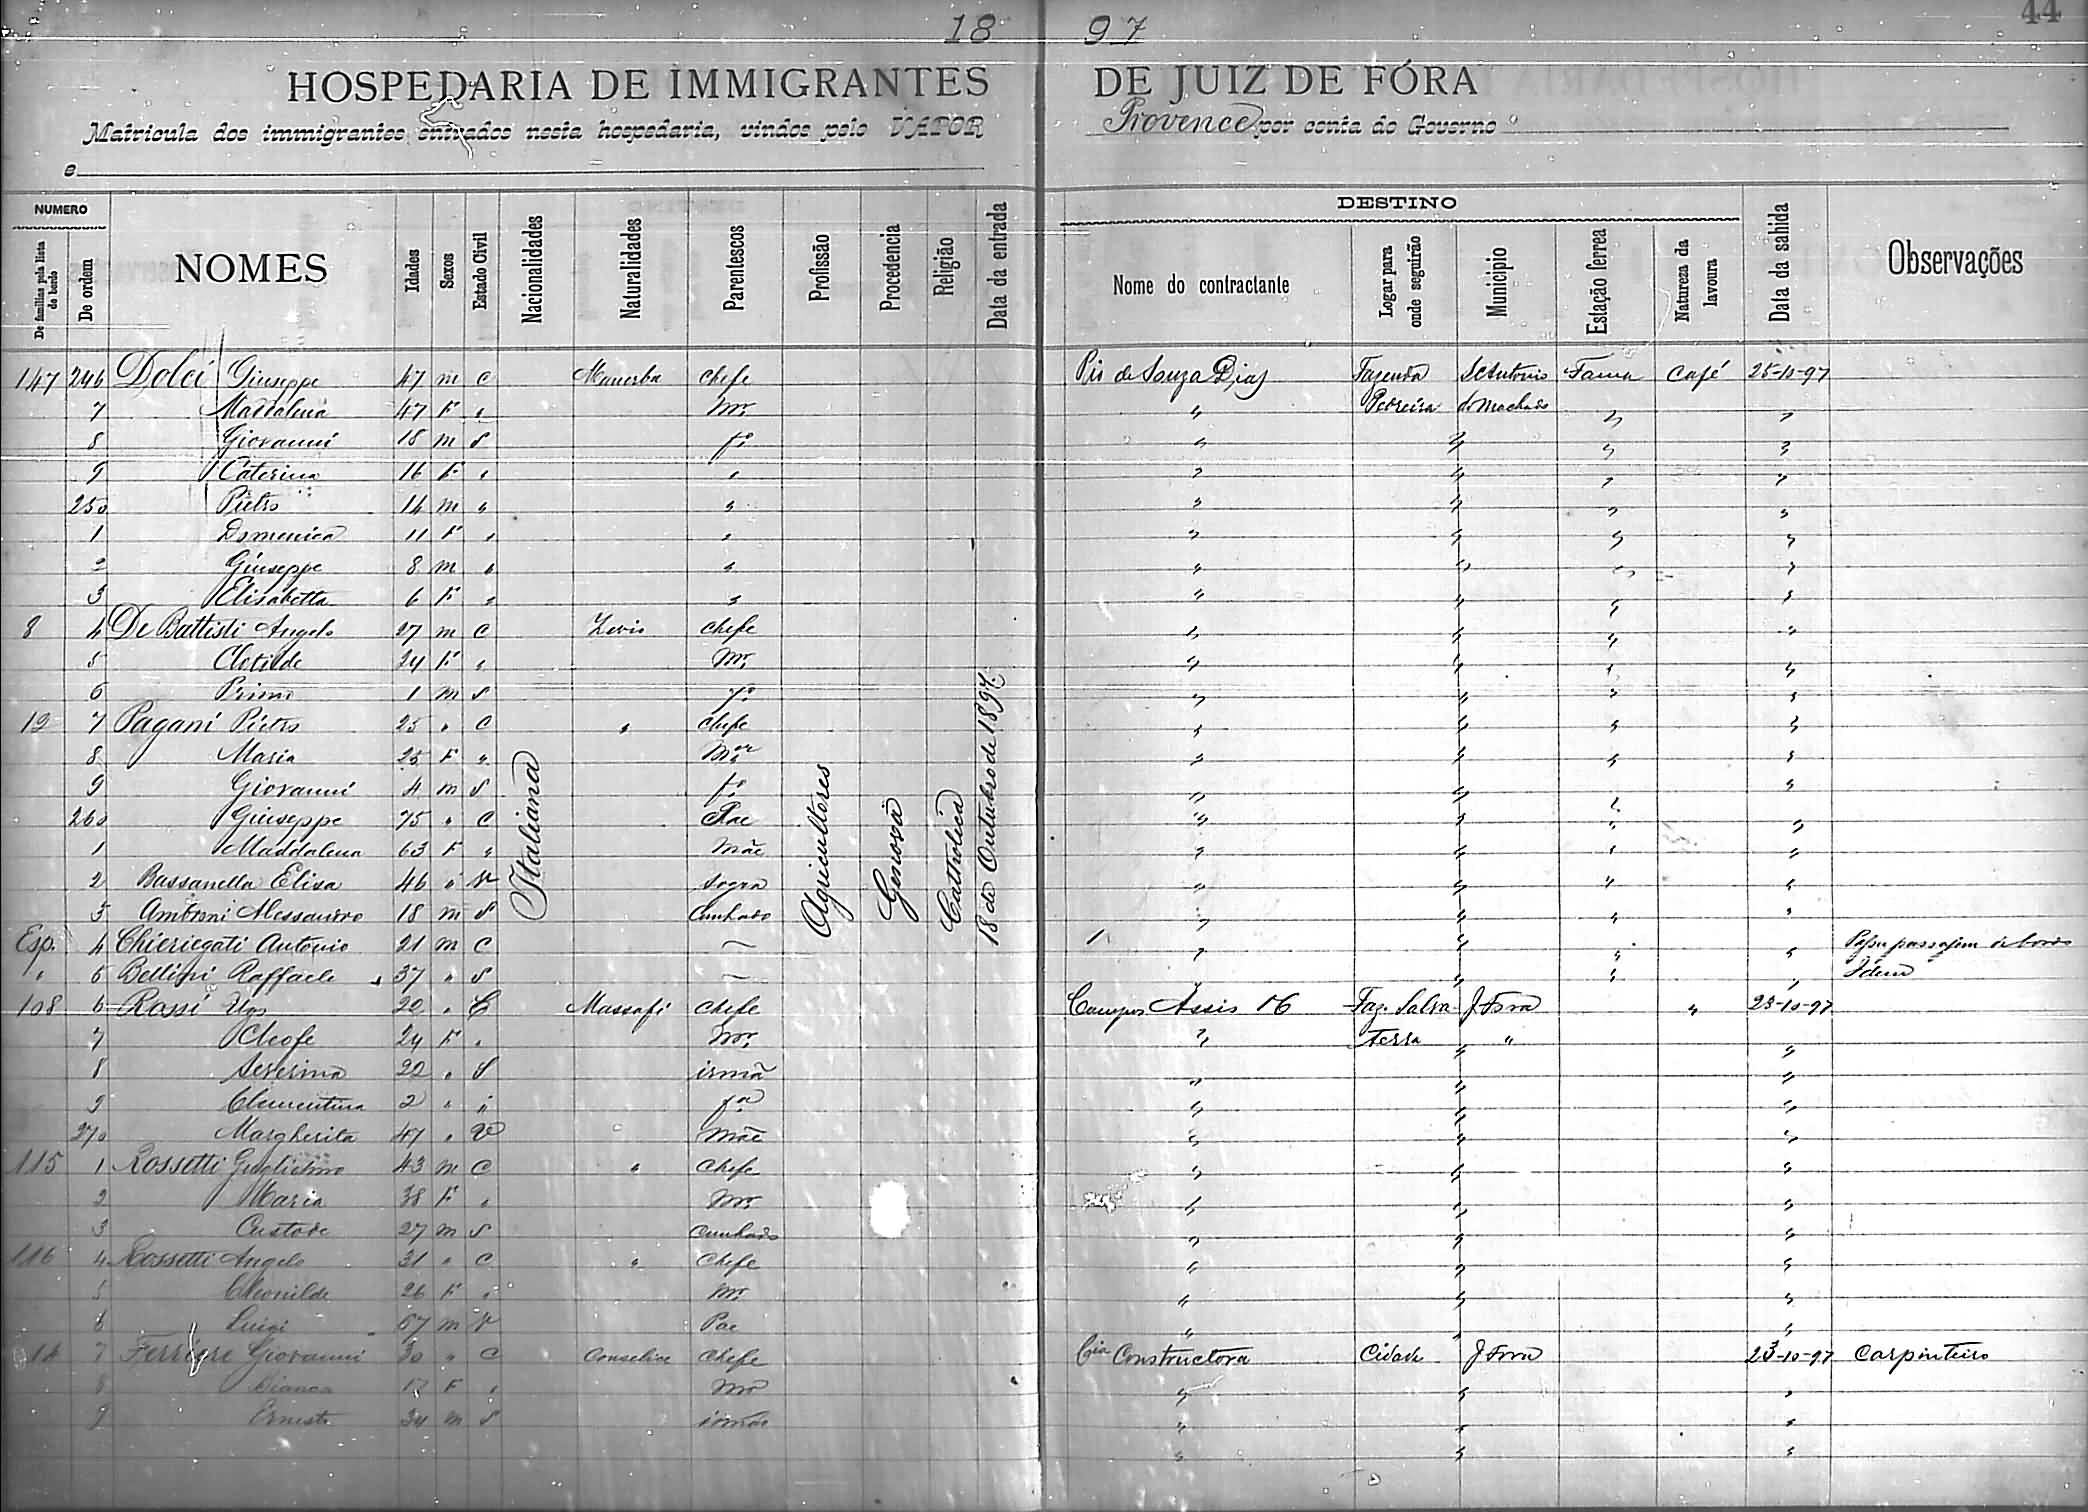 44
18 97
HOSPEDARIA DE IMMIGRANTES DE JUIZ DE FÓRA
Matricula dos immigrantes entrados nesta hospedaria, vindos pelo VAPOR Provence por conta do Governo
e
NUMERO
De familias pela lista de bordo
De ordem
NOMES
Idades
Sexos
Estado Civil
Nacionalidades
Naturalidades
Parentescos
Profissão
Procedencia
Religião
Data da entrada
DESTINO
Nome do contractante
Logar para onde seguirão
Municipio
Estação ferrea
Natureza da lavoura
Data da sahida
Observações
147 246 Dolci Giuseppe 47 m C Manerba Chefe Pio de Souza Dias Fazenda S Antonio Fama Café 25-10-97
7 Maddalena 47 F " Mr " Pedreira do Machado " "
8 Giovanni 18 m S fo " " " "
9 Caterina 16 F " " " " " "
250 Pietro 14 m " " " " " "
1 Domenica 11 F " " " " " "
2 Giuseppe 8 m " " " " " "
3 Elisabetta 6 F " " " " " "
8 4 De Battisti Angelo 27 m C Zevio Chefe " " " "
5 Clotilde 24 F " Mr " " " "
6 Primo 1 m S fo " " " "
12 7 Pagani Pietro 25 " C " Chefe " " " "
8 Maria 25 F " Mer " " " "
9 Giovanni 4 m S fo " " " "
260 Giuseppe 75 " C Pae " " " "
1 Maddalena 63 F " Mãe " " " "
2 Bassanella Elisa 46 " V Sogra " " " "
3 Ambroni Alessandro 18 m S Cunhado " " " "
Italiana
Agricultores
Genova
Catholica
18 de Outubro de 1897
Esp. 4 Chieriegati Antonio 21 m C — " " " " passagem de bordo
" 5 Bellini Raffaele 37 " S — " " " Idem
108 6 Rossi Ugo 22 " C Massafi Chefe Campos Assis Faz. Salva J Fora " 23-10-97
7 Cleofe 24 F " Mr " terra " "
8 Severina 22 " S irmã " " "
9 Clementina 2 " " fa " " "
270 Margherita 47 " V Mãe " " "
115 1 Rossetti Guglielmo 43 m C " Chefe " " "
2 Maria 38 F " Mr " " "
3 Custode 27 m S Cunhado " " "
116 4 Rossetti Angelo 31 " C " Chefe " " "
5 Cleonilde 26 F " Mr " " "
6 Luigi 67 m V Pae " " "
14 7 Ferrare Giovanni 30 " C Conselice Chefe Cia Constructora Cidade J Fora 23-10-97 Carpinteiro
8 Bianca F " Mr " " "
9 Ernesto m S irmão " " "
" " "